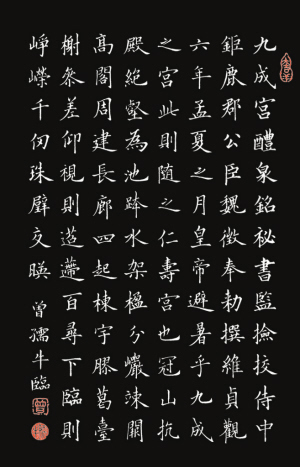 九成宮醴泉銘祕書監撿挍侍中
鉅鹿郡公臣魏徵奉勑撰維貞觀
六年孟夏之月皇帝避暑乎九成
之宮此則随之仁壽宮也冠山抗
殿絕壑為池跨水架楹分巗竦闕
髙閣周建長廊四起棟宇膠葛臺
榭叅差仰視則迢遰百尋下臨則
崢嶸千仞珠壁交暎 曾孺牛臨